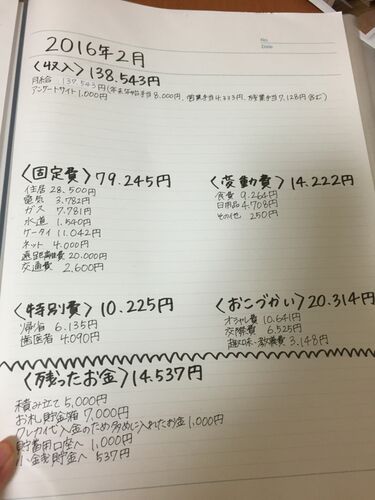 No.
Date
2016年2月
〈収入〉138.543円
月給 137.543円(年末年始手当8.000円、営業手当4.773円、残業手当7.128円含む)
アンケートサイト 1.000円
〈固定費〉79.245円
住居 28.500円
電気 3.782円
ガス 7.781円
水道 1.540円
ケータイ 11.042円
ネット 4.000円
遠距離費 20.000円
交通費 2.600円
〈変動費〉14.222円
食費 9.264円
日用品 4.708円
その他 250円
〈特別費〉10.225円
帰省 6.135円
歯医者 4.090円
〈おこづかい〉20.314円
オシャレ費 10.641円
交際費 6.525円
趣味・教養費 3.148円
〈残ったお金〉14.537円
積み立て 5,000円
お札貯金箱 7,000円
クレカ代入金のため多めに入れたお金 1,000円
貯蓄用口座へ 1,000円
小金を貯金へ 537円